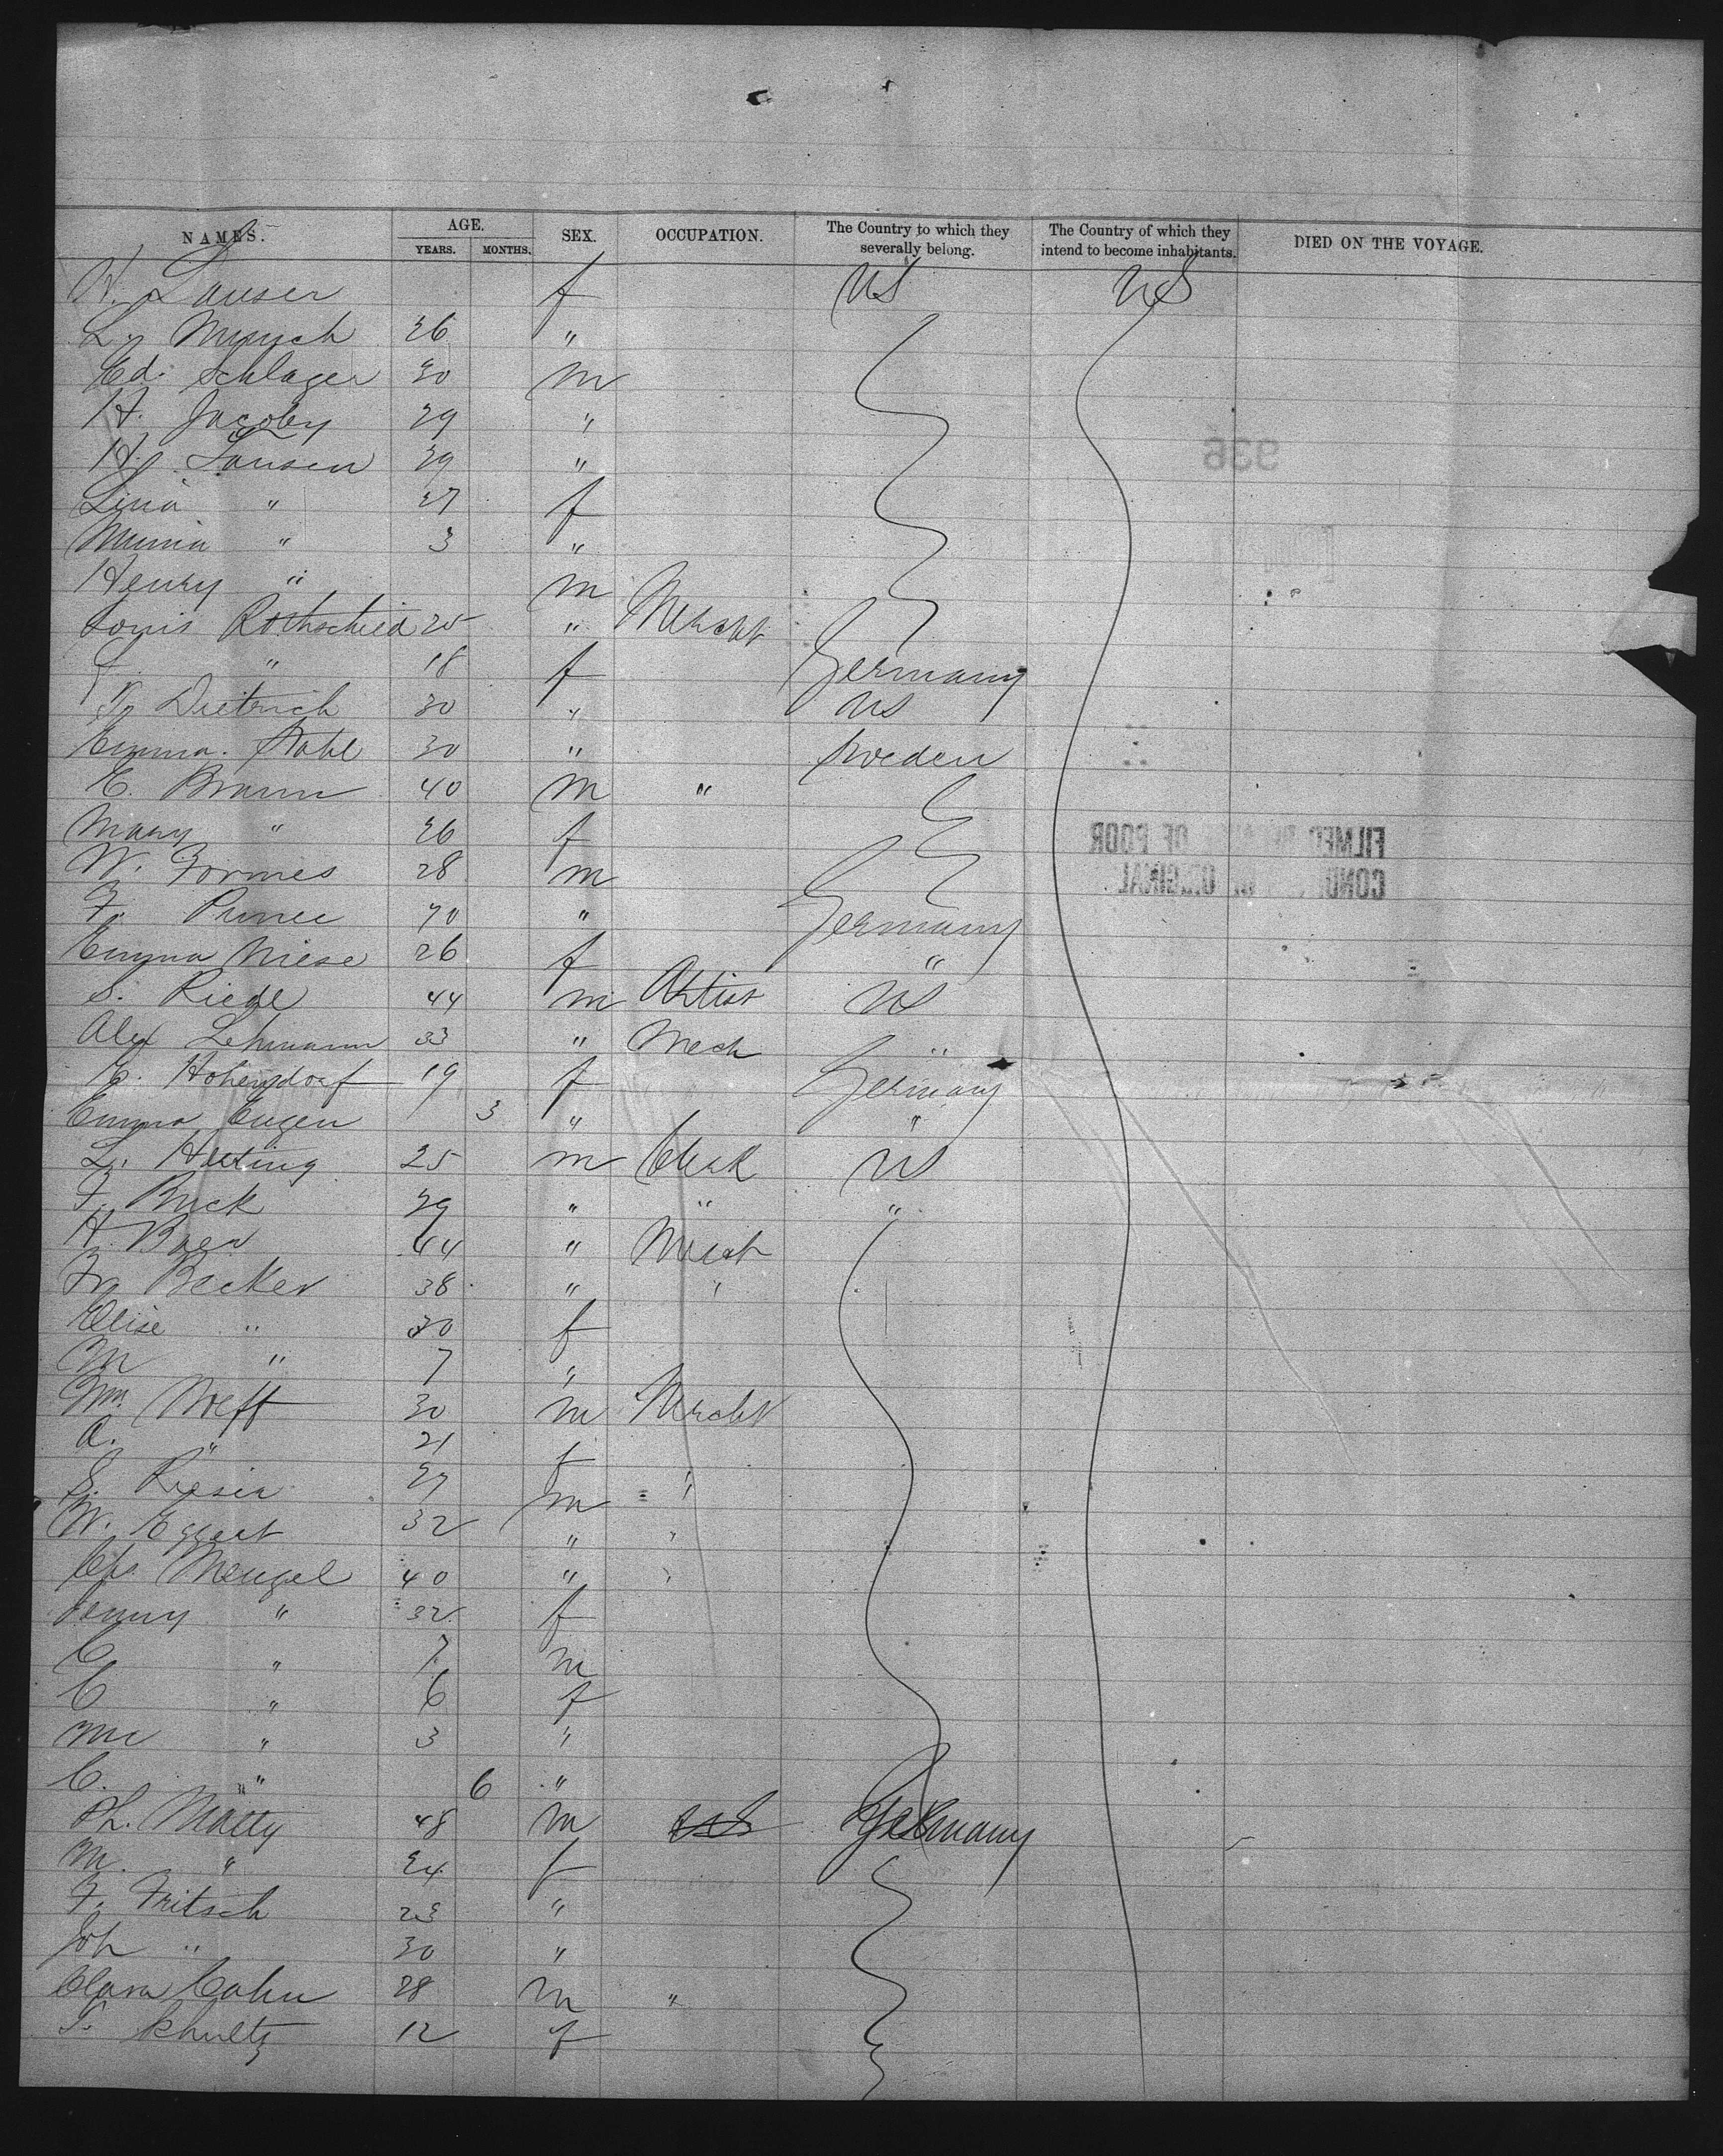 NAMES. AGE. YEARS. MONTHS. SEX. OCCUPATION. The Country to which they severally belong. The Country of which they intend to become inhabitants. DIED ON THE VOYAGE.
H. Lauser f US US
26 "
Ed. Schlager 30 m
H. Jacoby 29 "
H. Lausen 39 "
Lina " 27 f
Minnie " 3 "
Henry " m
Louis Rothschild 25 " Mercht
" 18 f Germany
Dietrich 30 " US
Emma Stahl 30 " Sweden
E. Braun 40 m "
Mary " 26 f
W. Formes 28 m
F. Prince 70 " Germany
Emma Niese 26 f "
S. Riedl 44 m Artist US
Alex Lehmann 33 " Mech "
E. Hohensdorf 19 f Germany
Emma Eugen 3 " "
L. Huting 25 m Clerk US
F. Buck 29 " " "
H. Baer 44 " Mercht
Fr Becker 38 " "
Elise " 30 f
M " 7 "
Wm. Noeff 30 m Mercht
A. " 21 f
S. 27 m "
W. Eggert 32 " "
Chs. Mengel 40 " "
Fanny " 32 f
C " 7 m
C " 6 f
" 3 "
C. " 6 "
Ph. Matty 48 m Germany
M. " 24 f
F. Fritsch 23 "
Joh " 30 "
Clara Cahn 28 m "
Schultz 12 f
936
FILMED OF POOR
ORIGINAL